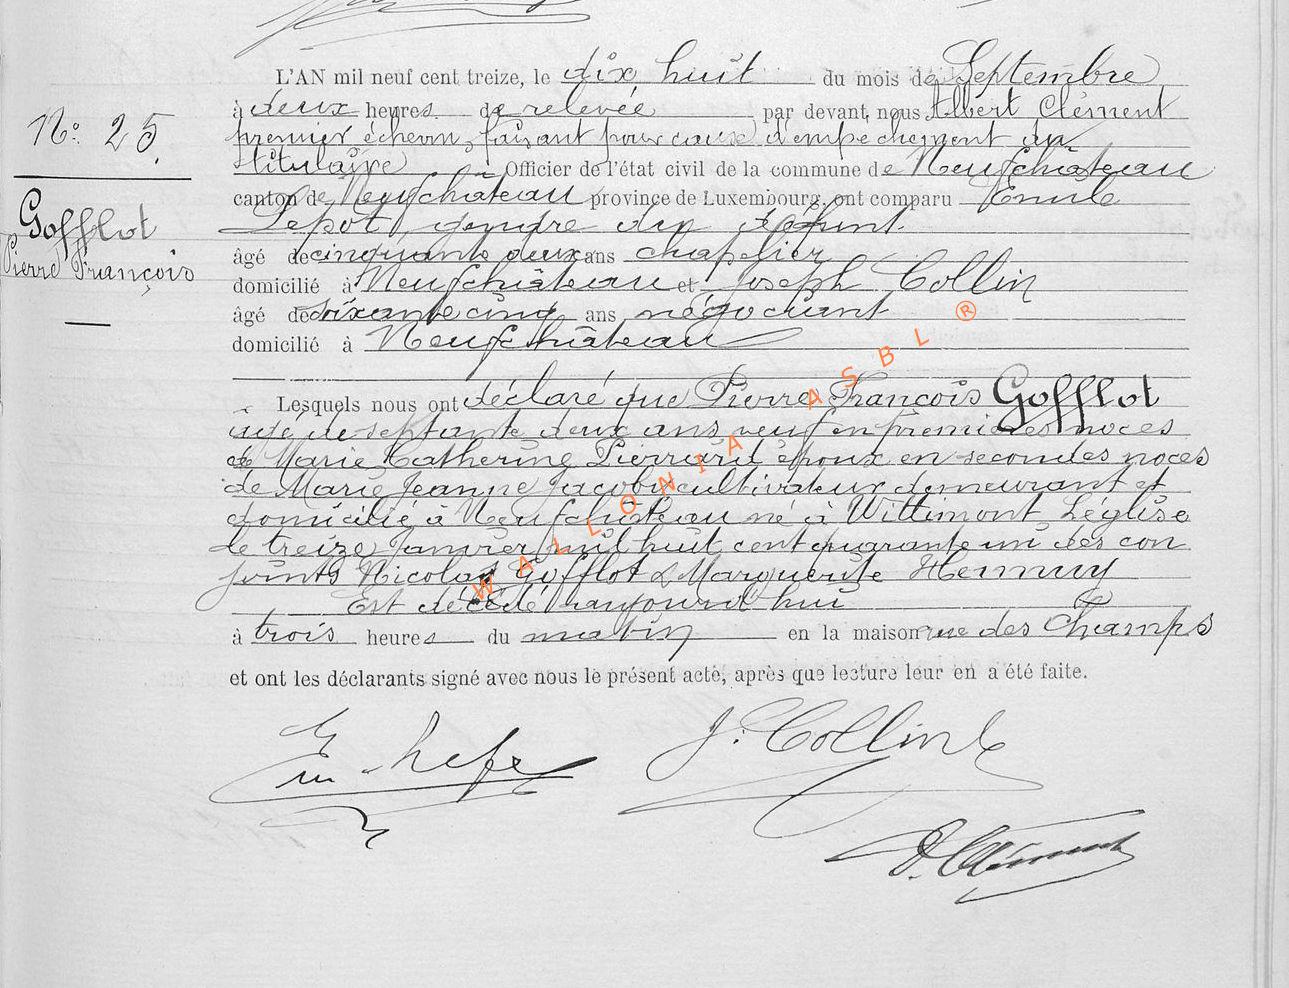 L'AN mil neuf cent treize, le dix huit du mois de Septembre
à deux heures de relevée par devant nous Albert Clément
premier échevin, faisant pour cause d'empêchement du
titulaire Officier de l'état civil de la commune de Neufchâteau
canton de Neufchâteau province de Luxembourg, ont comparu Emile
Lepot, gendre du défunt.
âgé de cinquante deux ans chapelier
domicilié à Neufchâteau et Joseph Collin
âgé de soixante cinq ans négociant
domicilié à Neufchâteau
N° 25
Gofflot
Pierre François
Lesquels nous ont déclaré que Pierre François Gofflot
agé de septante deux ans veuf en premières noces
de Marie Catherine Pierrard époux en secondes noces
de Marie Jeanne Jacoby cultivateur demeurant et
domicilié à Neufchâteau né à Wittimont Léglise
le treize Janvier mil huit cent quarante un des con
joints Nicolas Gofflot & Marguerite Hennuy
Est décédé aujourd'hui
à trois heures du matin en la maison rue des Champs
et ont les déclarants signé avec nous le présent acte, après que lecture leur en a été faite.
J. Collin
A. Clément
WALLONIA ASBL ®